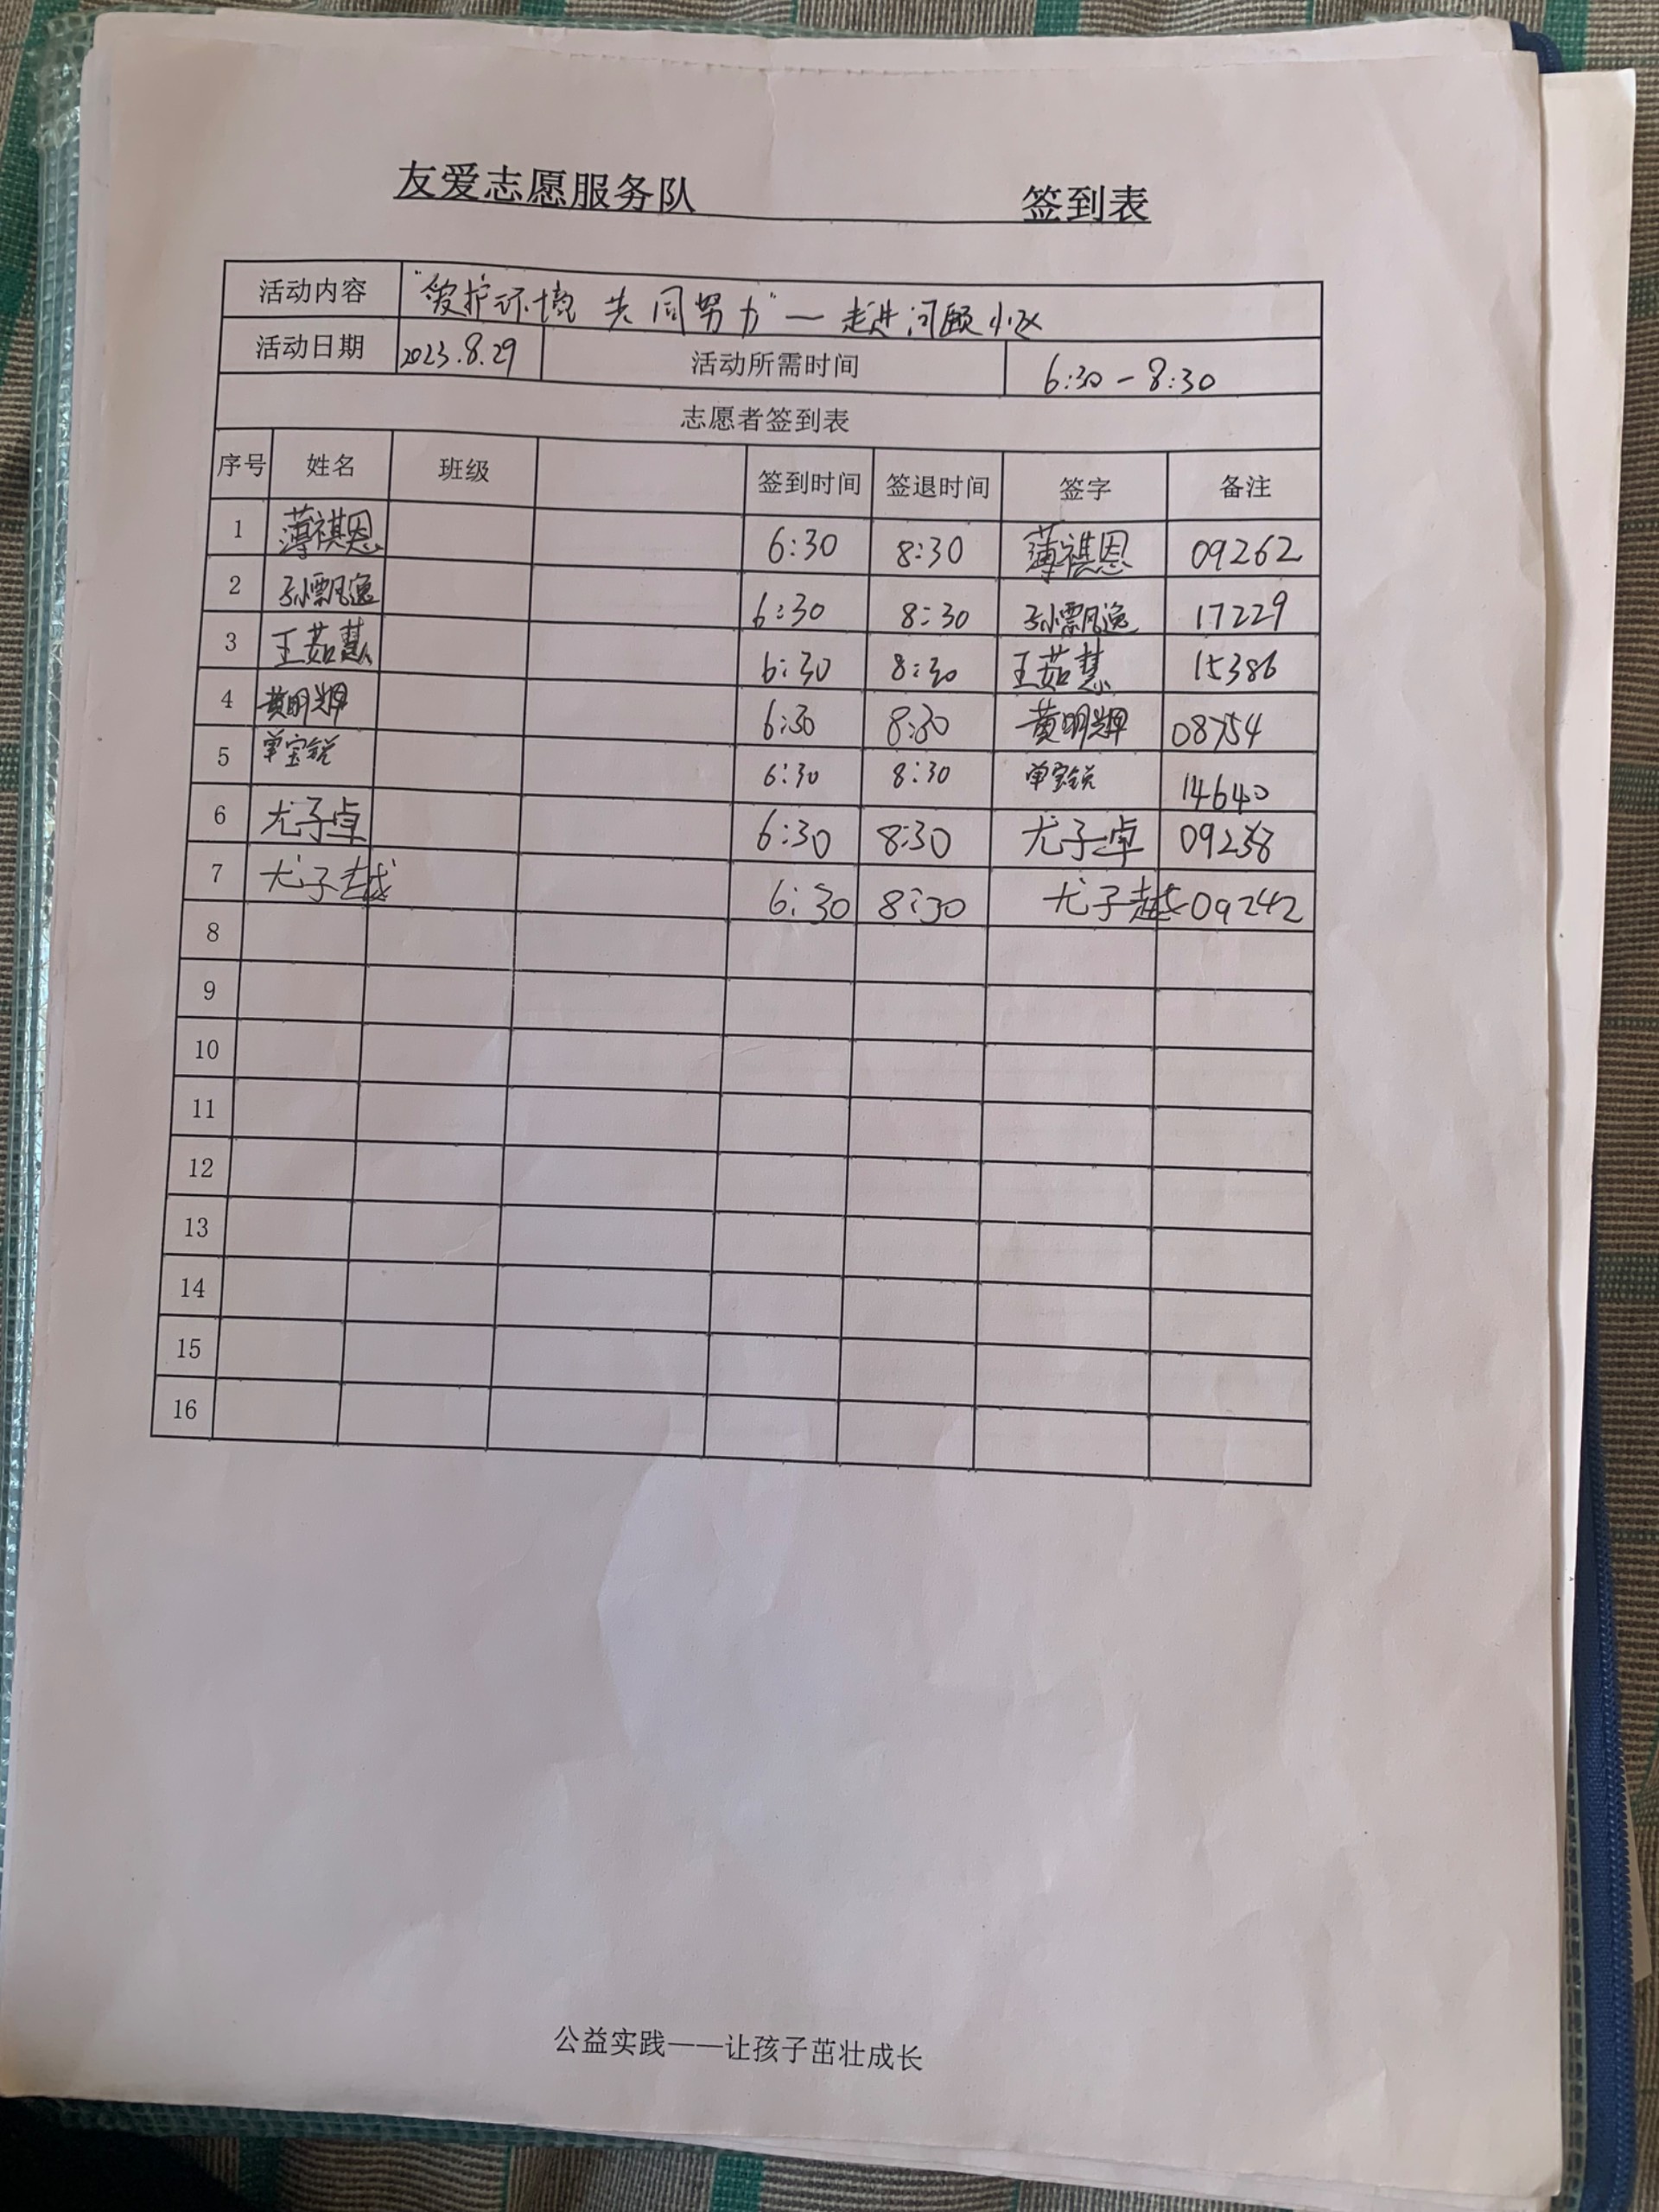 友爱志愿服务队 签到表
活动内容 "爱护环境 共同努力"一走进河颐小区
活动日期 2023.8.29 活动所需时间 6:30-8:30
志愿者签到表
序号 姓名 班级 签到时间 签退时间 签字 备注
1 薄祺恩 6:30 8:30 薄祺恩 09262
2 孙飘逸 6:30 8:30 孙飘逸 17229
3 王茹慧 6:30 8:30 王茹慧 15386
4 黄明辉 6:30 8:30 黄明辉 08754
5 单宝锐 6:30 8:30 单宝锐 14640
6 尤子卓 6:30 8:30 尤子卓 09238
7 尤子越 6:30 8:30 尤子越 09242
8
9
10
11
12
13
14
15
16
公益实践——让孩子茁壮成长